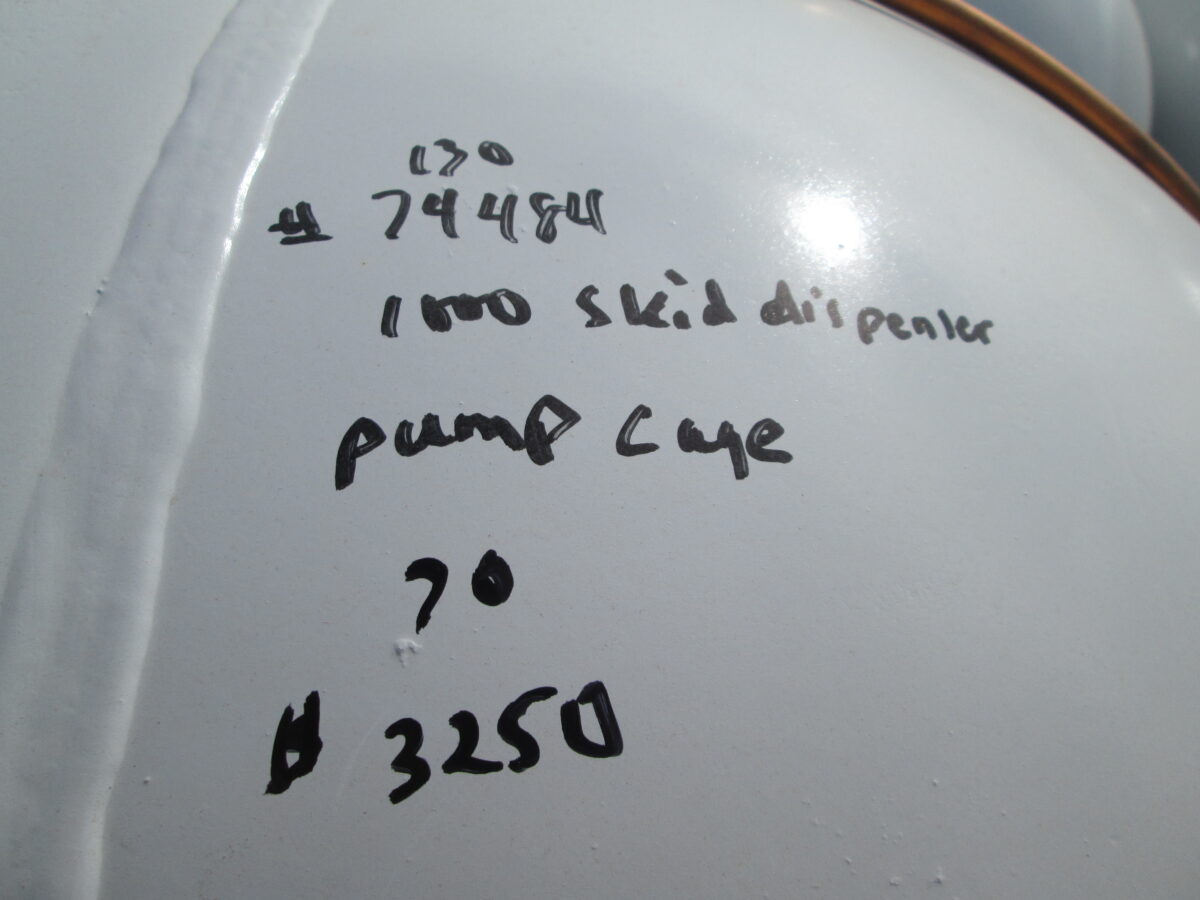 130
# 74484
1000 skid dispenser
pump cage
70
# 3250